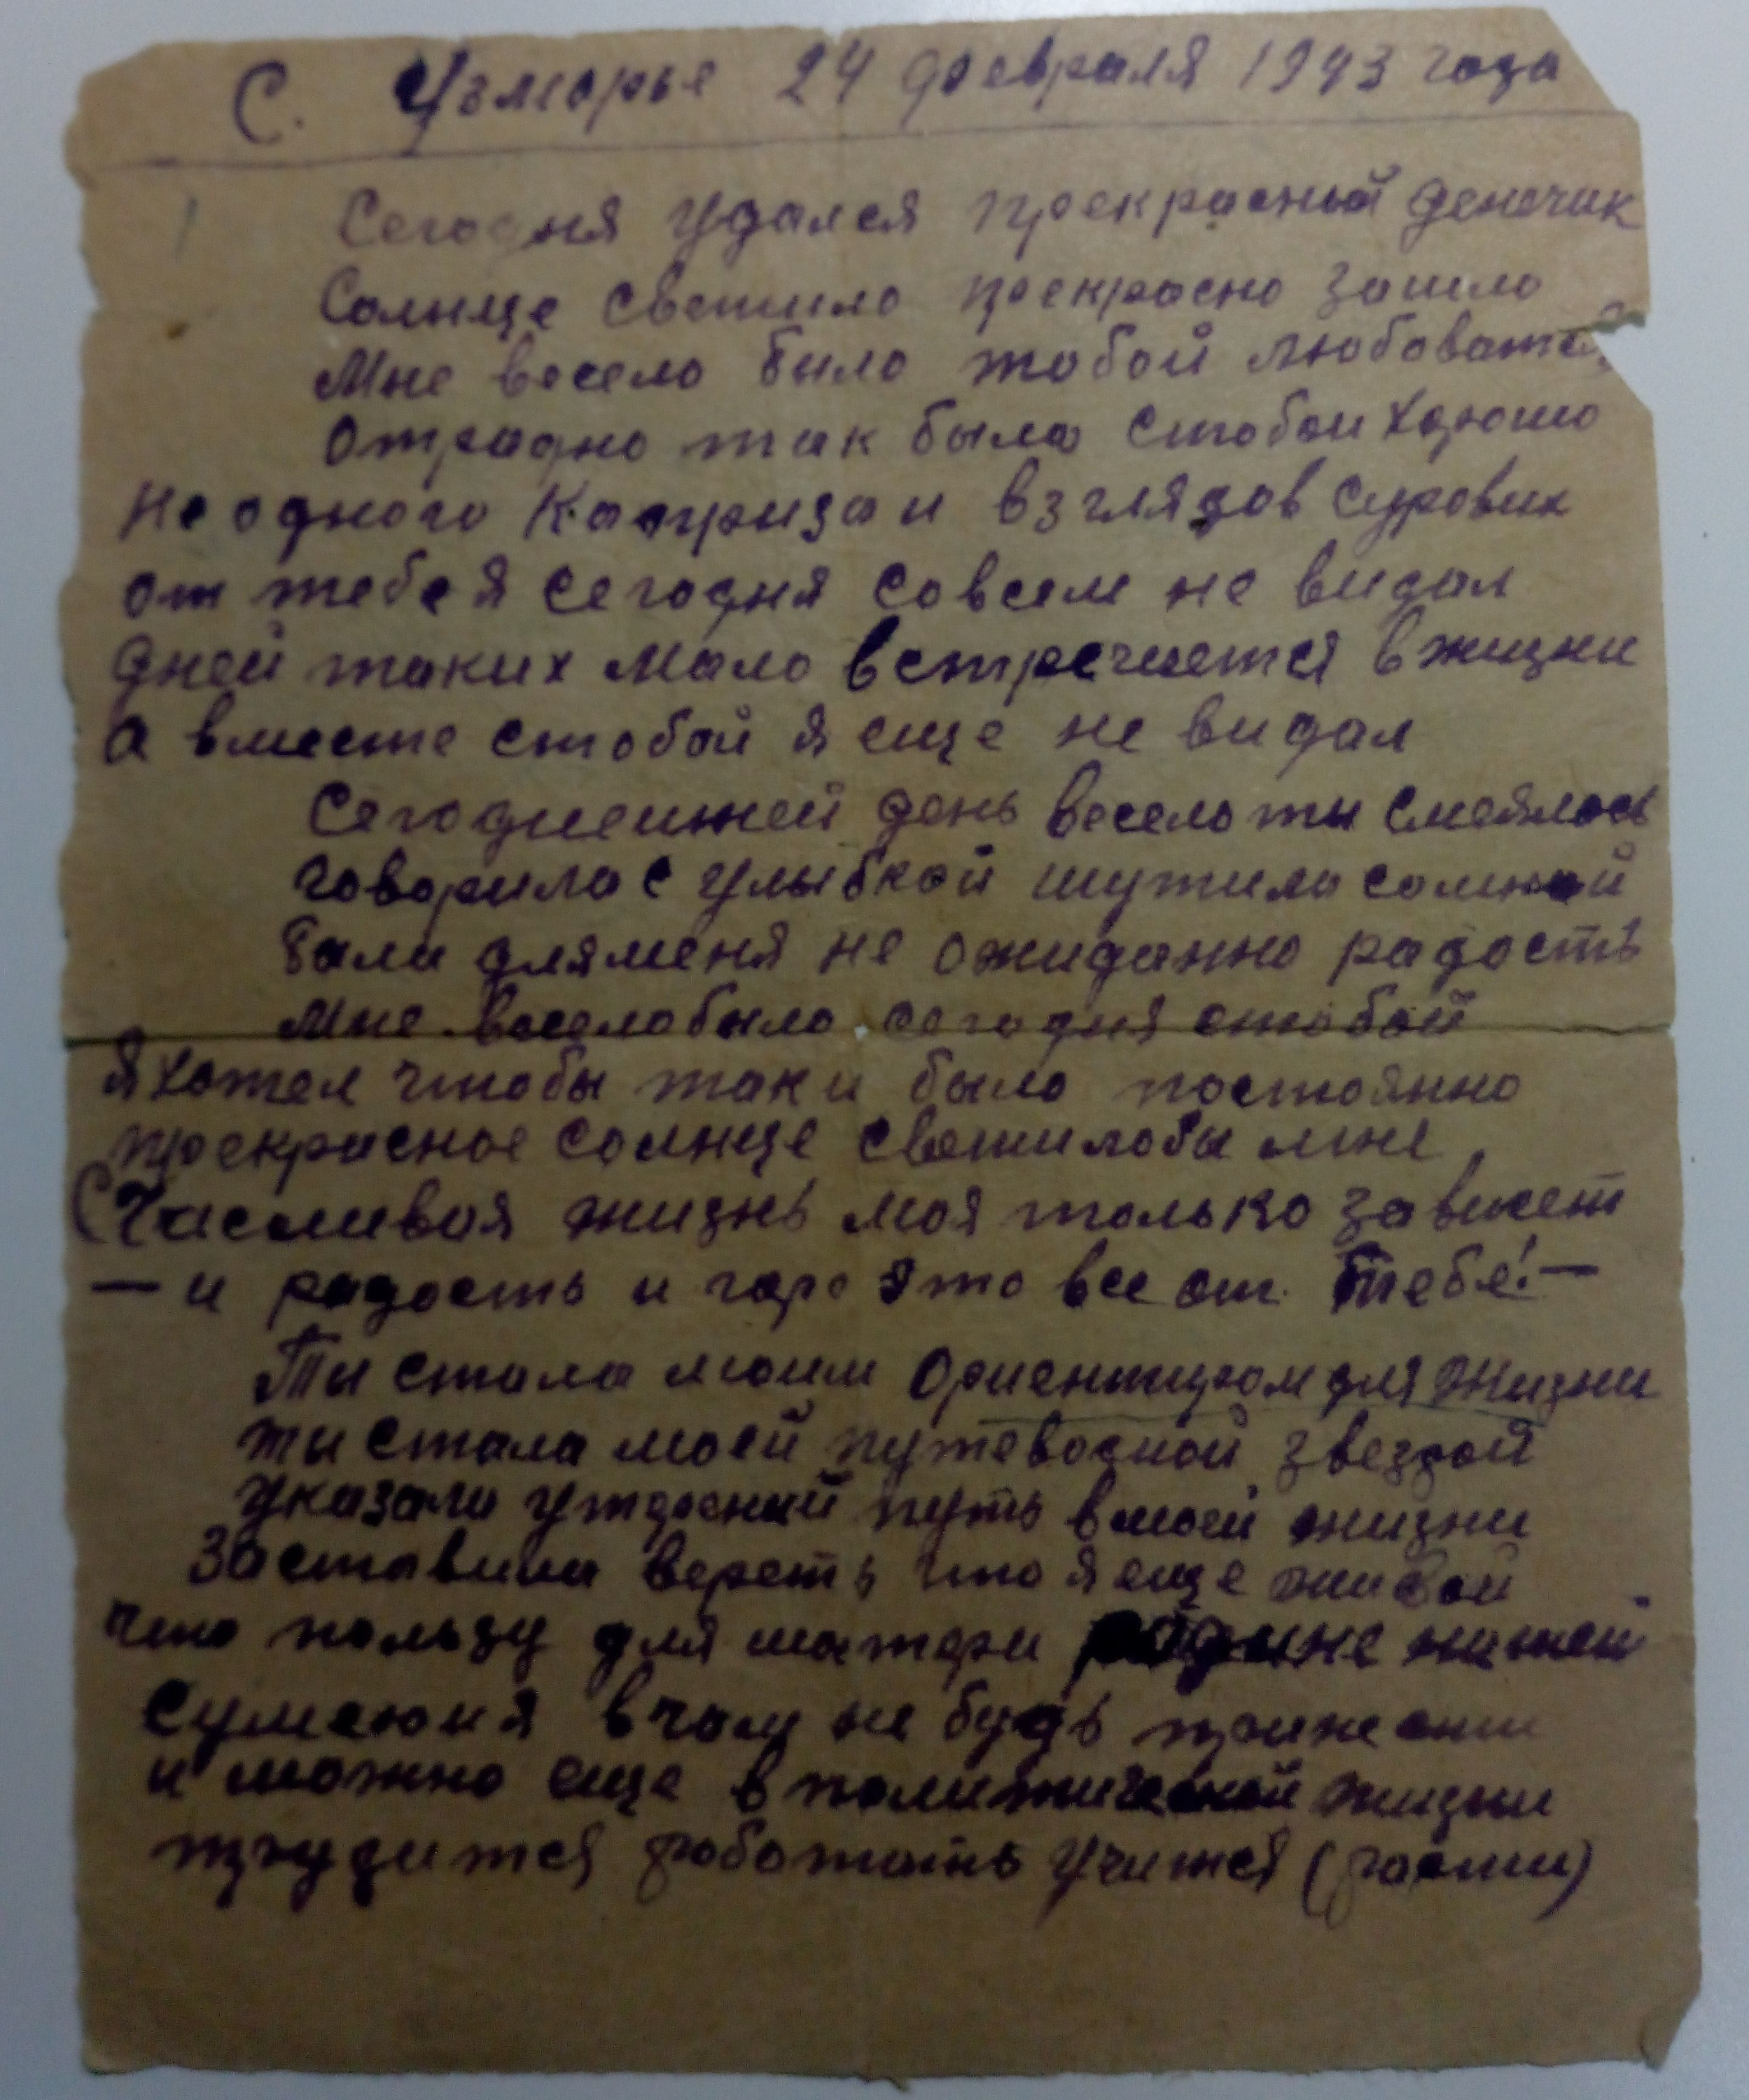 С. Узморье 24 февраля 1943 года
Сегодня удался прекрасный денечик
Солнце светило прекрасно зашло
Мне весело было тобой любоватс
Отрадно так было стобои хорошо
Не одного Каприза и взглядов сурових
от тебея сегодня совсем не видал
Дней таких мало встречаетея в жизни
а вместе стобой я еще не видал
Сегоднешней день весело ты смеялась
говорила с улыбкой шутила сомной
Была дляменя не ожиданно радость
Мне весело было сегодня стобой
Я хотел чтобы так и было постоянно
прекрасное солнце светилобы мне
Счасливая жизнь моя только зависет
— и радость и горе это все от тебя! —
Ты стала моим Ориентиром для жизни
ты стала моей путеводной звездой
указала утдосний путь вмоей жизни
Заставила вереть что я еще живой
что пользу для матери родине нашей
Сумею и я вчом не будь принести
и можно еще в политической жизни
трудится работать учится (расти)